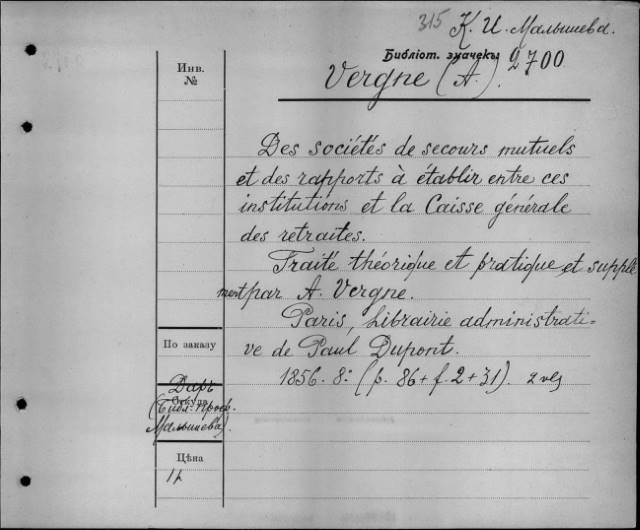 315 К. И. Малышева.
Инв.
№
Библіот. значекъ 2700
Vergne (A).
Des sociétés de secours mutuels
et des rapports à établir entre ces
institutions et la Caisse générale
des retraites.
Traité théorique et pratique et supplé
ment par A. Vergne.
Paris, Librairie administrati-
ve de Paul Dupont.
1856. 8: (p. 86 + f. 2 + 31).
По заказу
Даръ
Откуда
(Библ. Проф.
Малышева)
Цѣна